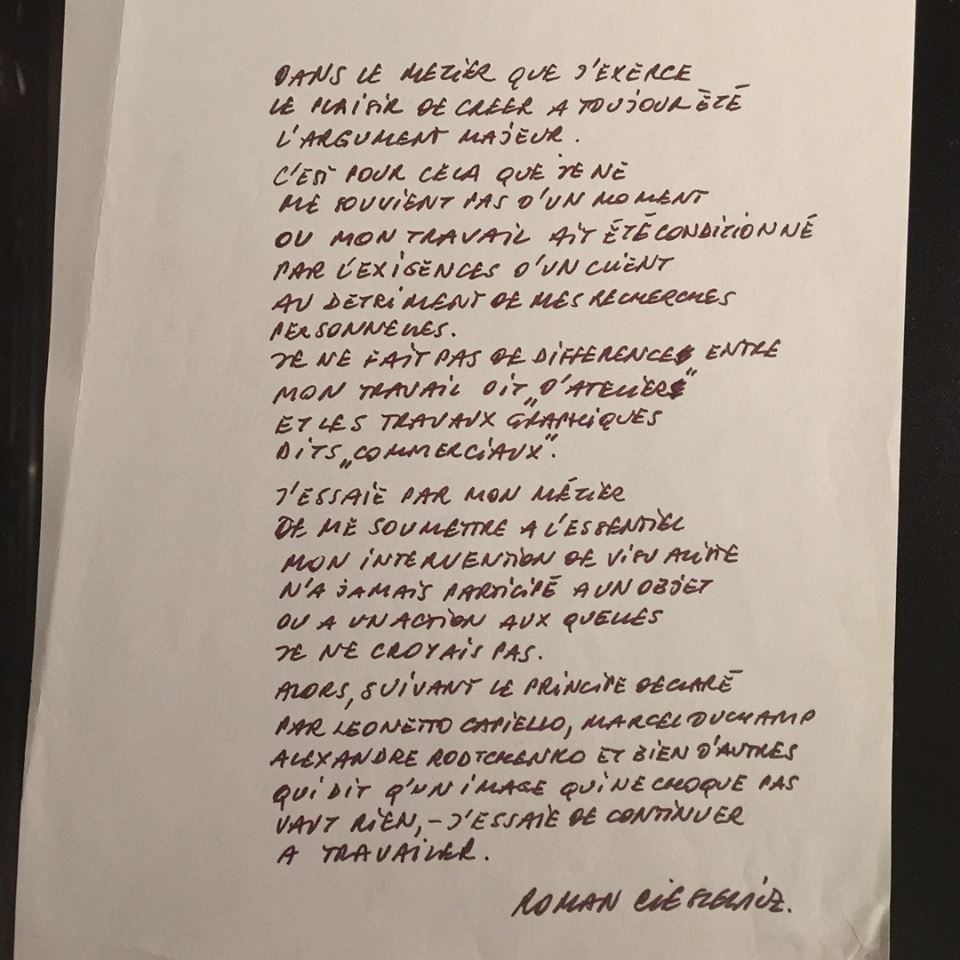 DANS LE METIER QUE J'EXERCE
LE PLAISIR DE CREER A TOUJOUR ÉTÉ
L'ARGUMENT MAJEUR.
C'EST POUR CELA QUE JE NE
ME SOUVIENT PAS D'UN MOMENT
OU MON TRAVAIL AIT ÉTÉ CONDITIONNÉ
PAR L'EXIGENCES D'UN CLIENT
AU DETRIMENT DE MES RECHERCHES
PERSONNELLES.
JE NE FAIT PAS DE DIFFERENCE ENTRE
MON TRAVAIL DIT „D'ATELIER"
ET LES TRAVAUX GRAPHIQUES
DITS „COMMERCIAUX".
J'ESSAIE PAR MON MÉTIER
DE ME SOUMETTRE A L'ESSENTIEL
MON INTERVENTION DE VISUALITE
N'A JAMAIS PARTICIPÉ A UN OBJET
OU A UN ACTION AUX QUELLES
JE NE CROYAIS PAS.
ALORS, SUIVANT LE PRINCIPE DECLARÉ
PAR LEONETTO CAPIELLO, MARCEL DUCHAMP
ALEXANDRE RODTCHENKO ET BIEN D'AUTRES
QUI DIT Q'UN IMAGE QUI NE CHOQUE PAS
VAUT RIEN, – J'ESSAIE DE CONTINUER
A TRAVAILLER.
ROMAN CIEŚLEWICZ.